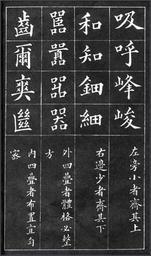 吸呼峰峻
左旁小者齊其上
和知鈿細
右邊少者齊其下
囂器
外四疊者體格必整方
齒爾爽
內四疊者布置宜匀密